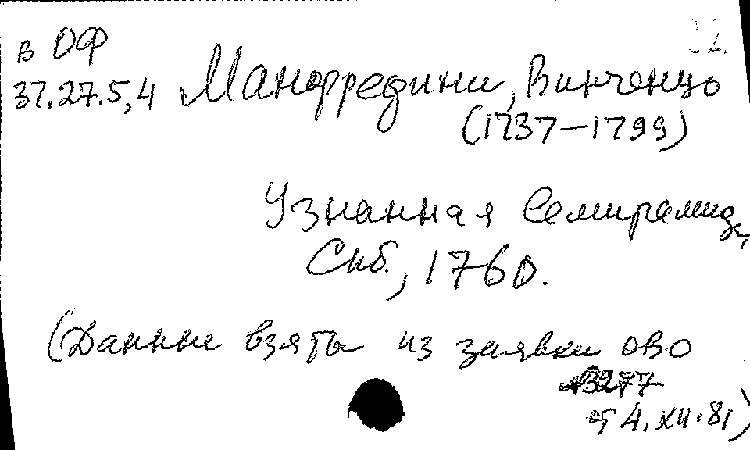 в ОФ
37.27.5,4 Манфредини, Винченцо
(1737-1799)
Узнанная Семирамида,
Спб., 1760.
(Данные взяты из заявки ОВО
3277
от 4.XII.81)